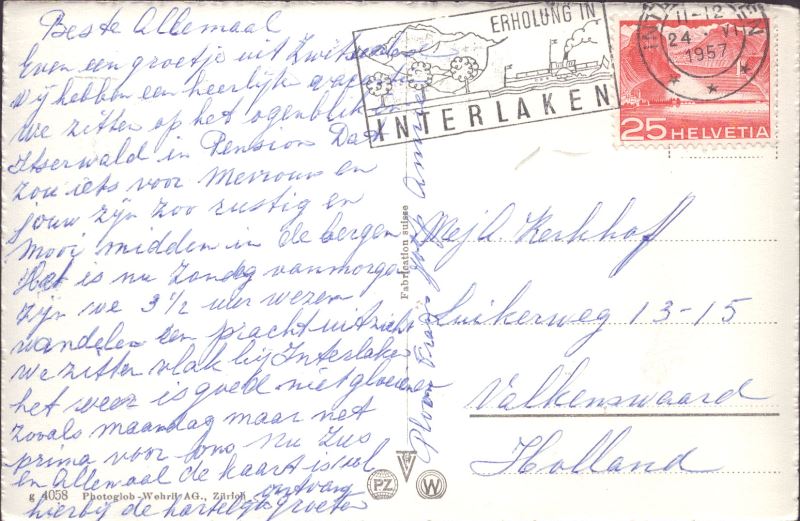 Beste Allemaal
Even een groetje uit Zwitserland
wij hebben een heerlijk
we zitten op het ogenblik in
Itserwald in Pension Das
zou iets voor Mevrouw en
jouw zijn zoo rustig en
mooi midden in de bergen
Het is nu Zondag vanmorgen
zijn we 3 1/2 uur wezen
wandelen een pracht uitzicht
we zitten vlak bij Interlaken
het weer is goed niet gloeiend
zooals maandag maar net
prima voor ons Nu Zus
en Allemaal de kaart is vol
ontvang
hierbij de hartelijk groeten
Annie
ERHOLUNG IN
INTERLAKEN
11-12
24 VI
1957
25 HELVETIA
Fabrication suisse
Mej A. Kerkhof
Luikerweg 13-15
Valkenswaard
Holland
g 4058 Photoglob-Wehrli AG., Zürich
PZ
W